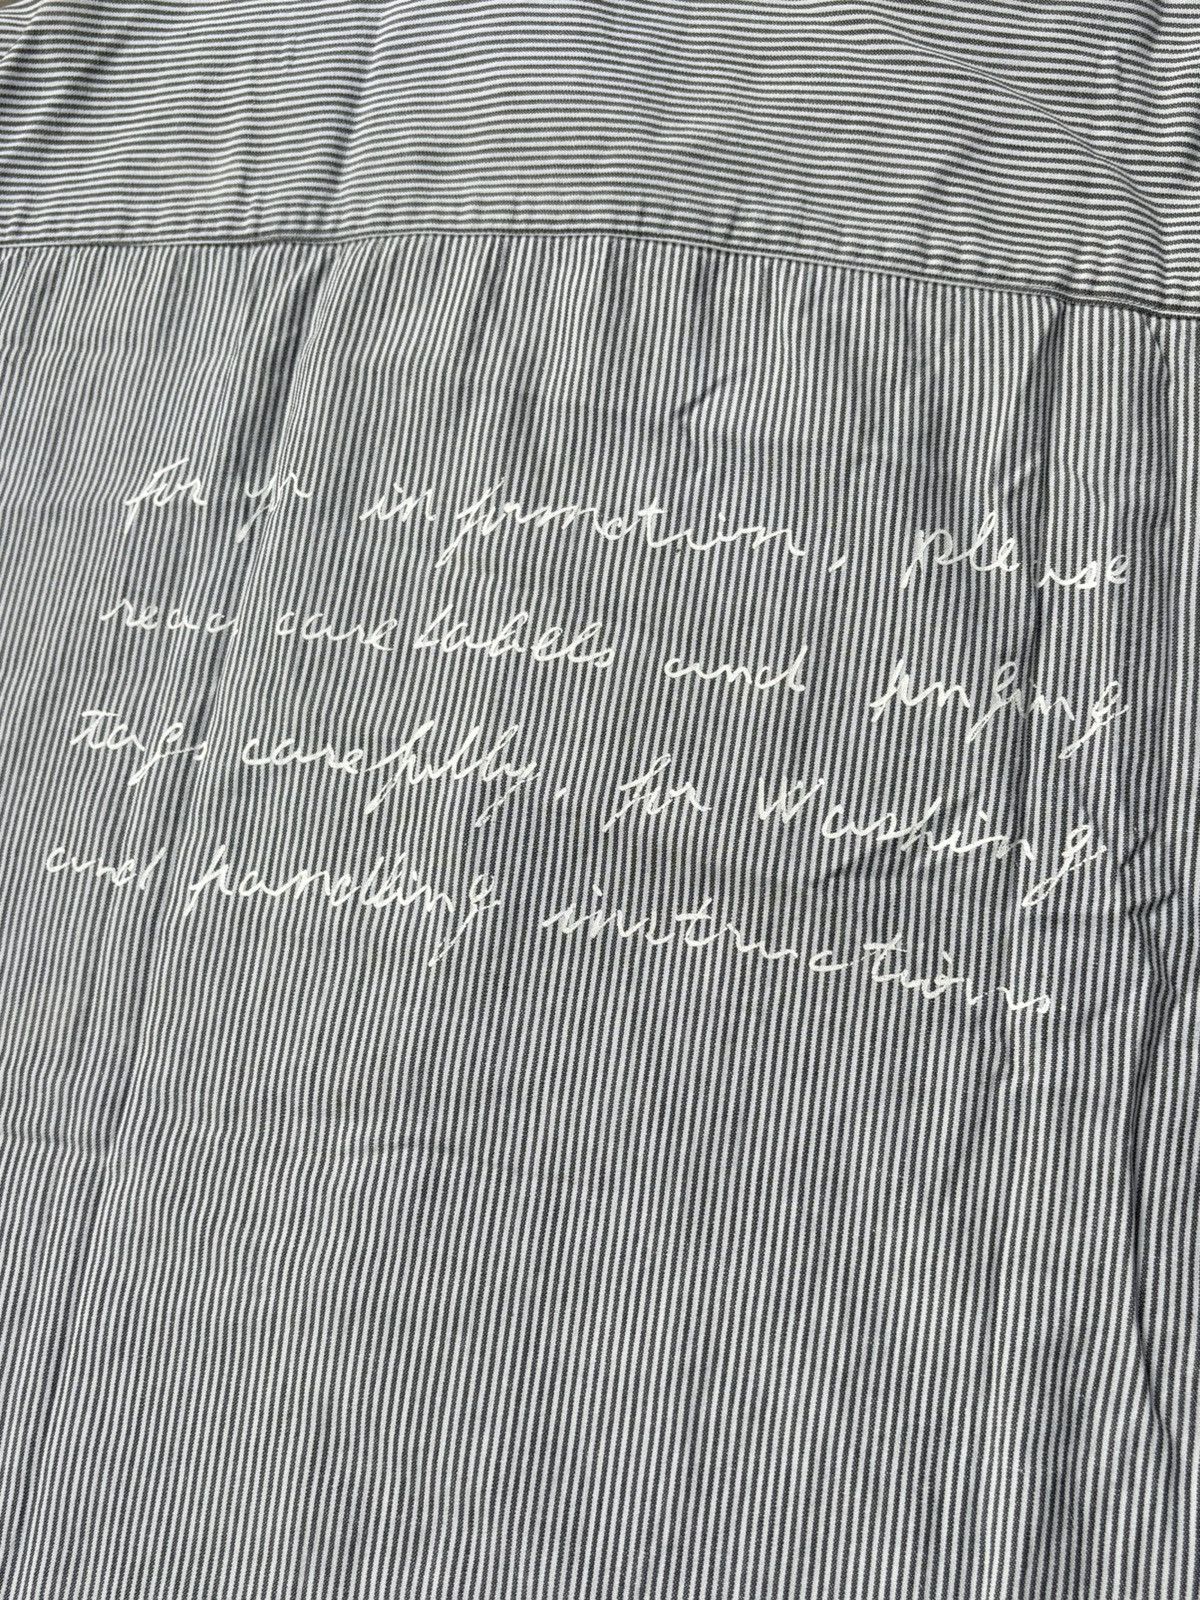 for yr information, please
read care labels and hnging
tags carefully, for washing
and handling instructions